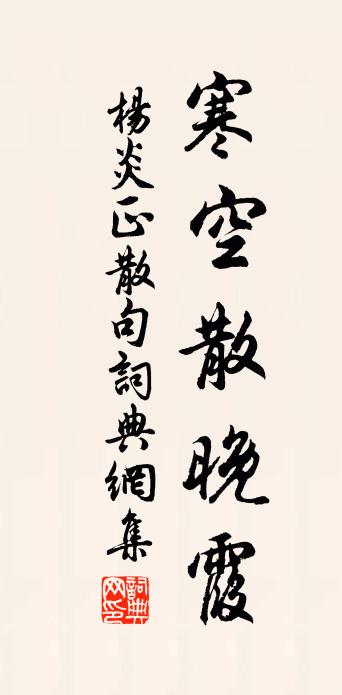 寒空散晚霞
楊炎正散句詞典網集
詞典网印